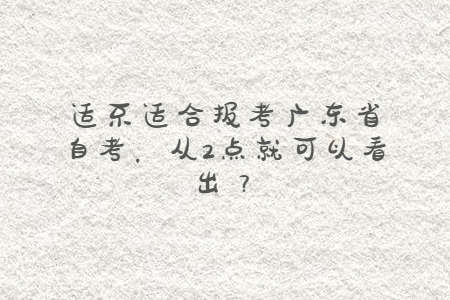 适不适合报考广东省
自考，从2点就可以看
出？